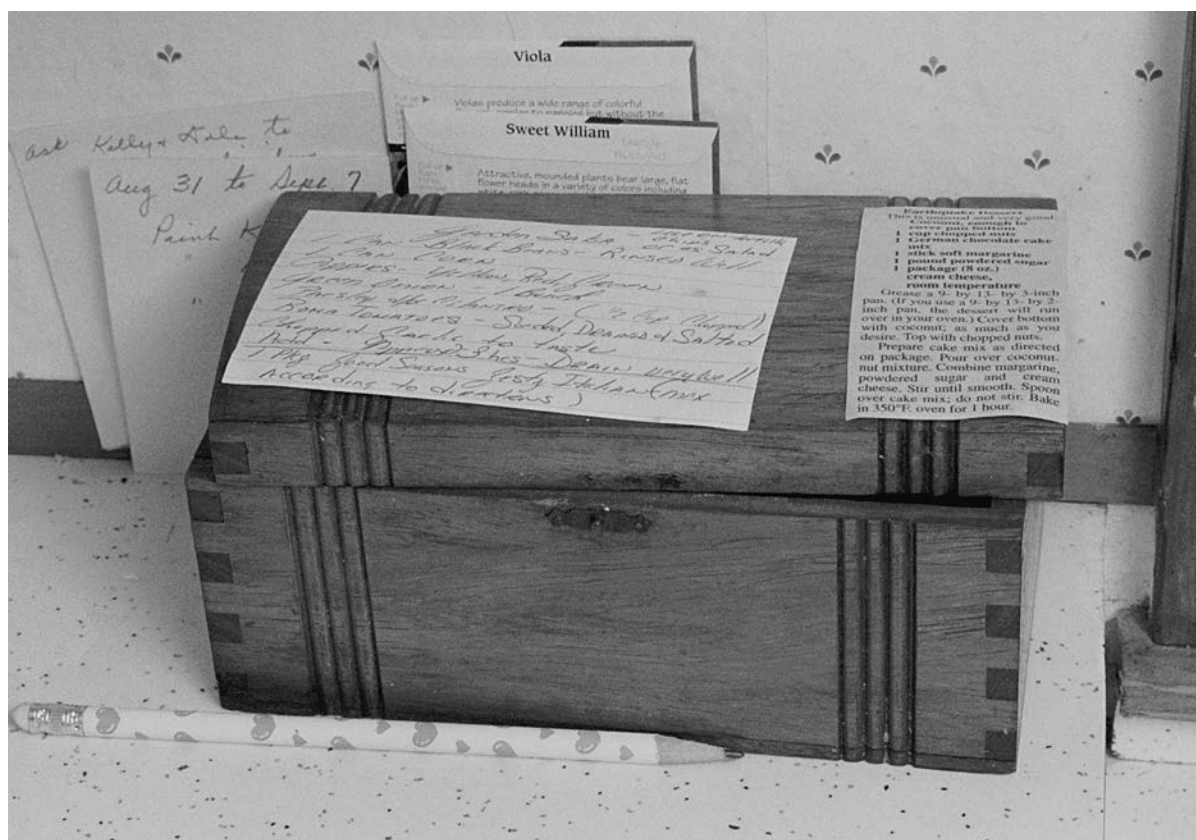 Viola
Violas produce a wide range of colorful
similar to pansies but without the
Sweet William
Attractive, mounded plants bear large, flat
flower heads in a variety of colors including
ask Kelly + to
Aug 31 to Sept. 7
Paint
Salsa
chips
or as Salad
Can Corn
Black Beans - Rinsed Well
Peppies - Yellow Red Green
Green Onion - 1 Bunch
Parsley + Cilantro - (½ Cup
Roma Tomatoes - Seeded, Drained & Salted
Chopped Garlic to taste
Drain very well
1 Pkg Good Seasons Zesty Italian (mix
According to directions)
Earthquake Dessert
This is unusual and very good.
Coconut, enough to
cover pan bottom
1 cup chopped nuts
1 German chocolate cake
mix
1 stick soft margarine
1 pound powdered sugar
1 package (8 oz.)
cream cheese,
room temperature
Grease a 9- by 13- by 3-inch
pan. (If you use a 9- by 13- by 2-
inch pan, the dessert will run
over in your oven.) Cover bottom
with coconut; as much as you
desire. Top with chopped nuts.
Prepare cake mix as directed
on package. Pour over coconut-
nut mixture. Combine margarine,
powdered sugar and cream
cheese. Stir until smooth. Spoon
over cake mix; do not stir. Bake
in 350°F. oven for 1 hour.